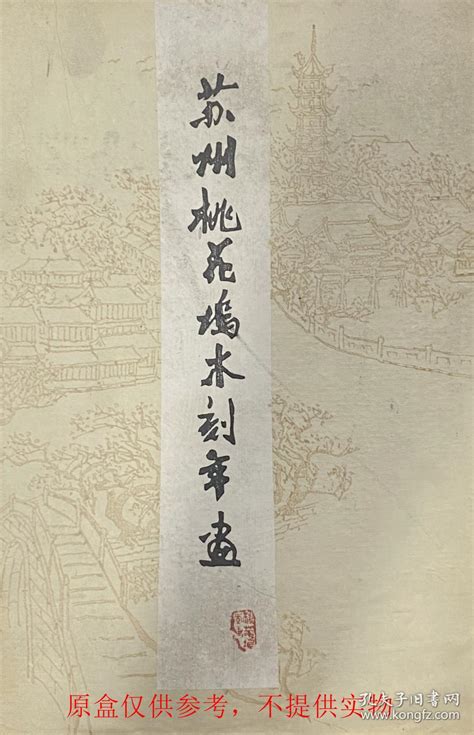 苏州桃花坞木刻年画
原盒仅供参考，不提供实物
孔夫子旧书网
www.kongfz.com